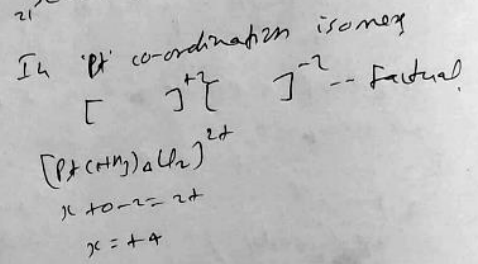 21
In 'Pt' co-ordination isomers
[ ]⁺² [ ]⁻² -- factual.
[Pt(NH₃)₄Cl₂]²⁺
x + 0 - 2 = 2+
x = +4